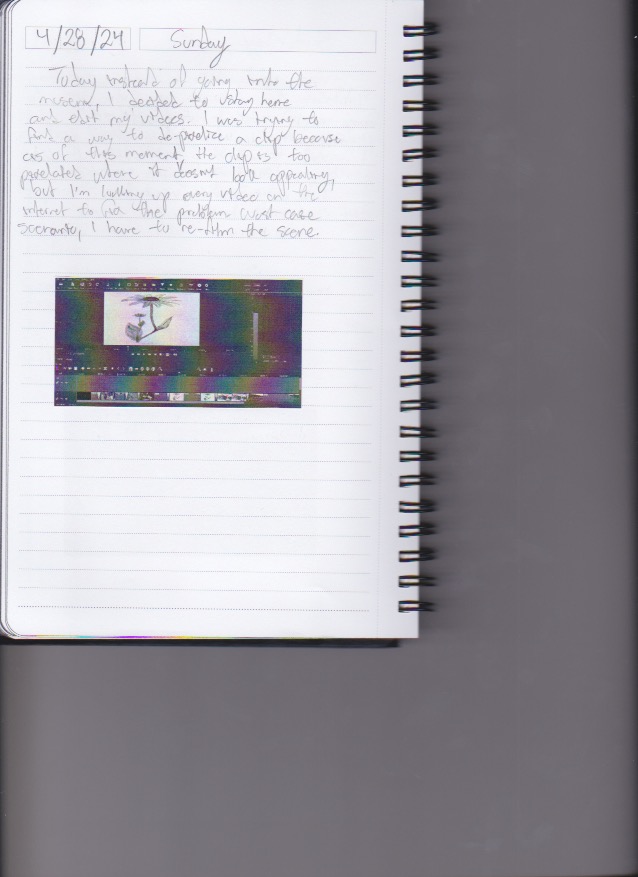 4/28/24 Sunday
Today instead of going into the
museum, I decided to stay home
and edit my videos. I was trying to
find a way to de-pixelize a clip because
as of this moment the clip is too
pixelated where it doesnt look appealing,
but I'm looking up every video on the
internet to fix the problem worst case
scenario, I have to re-film the scene.